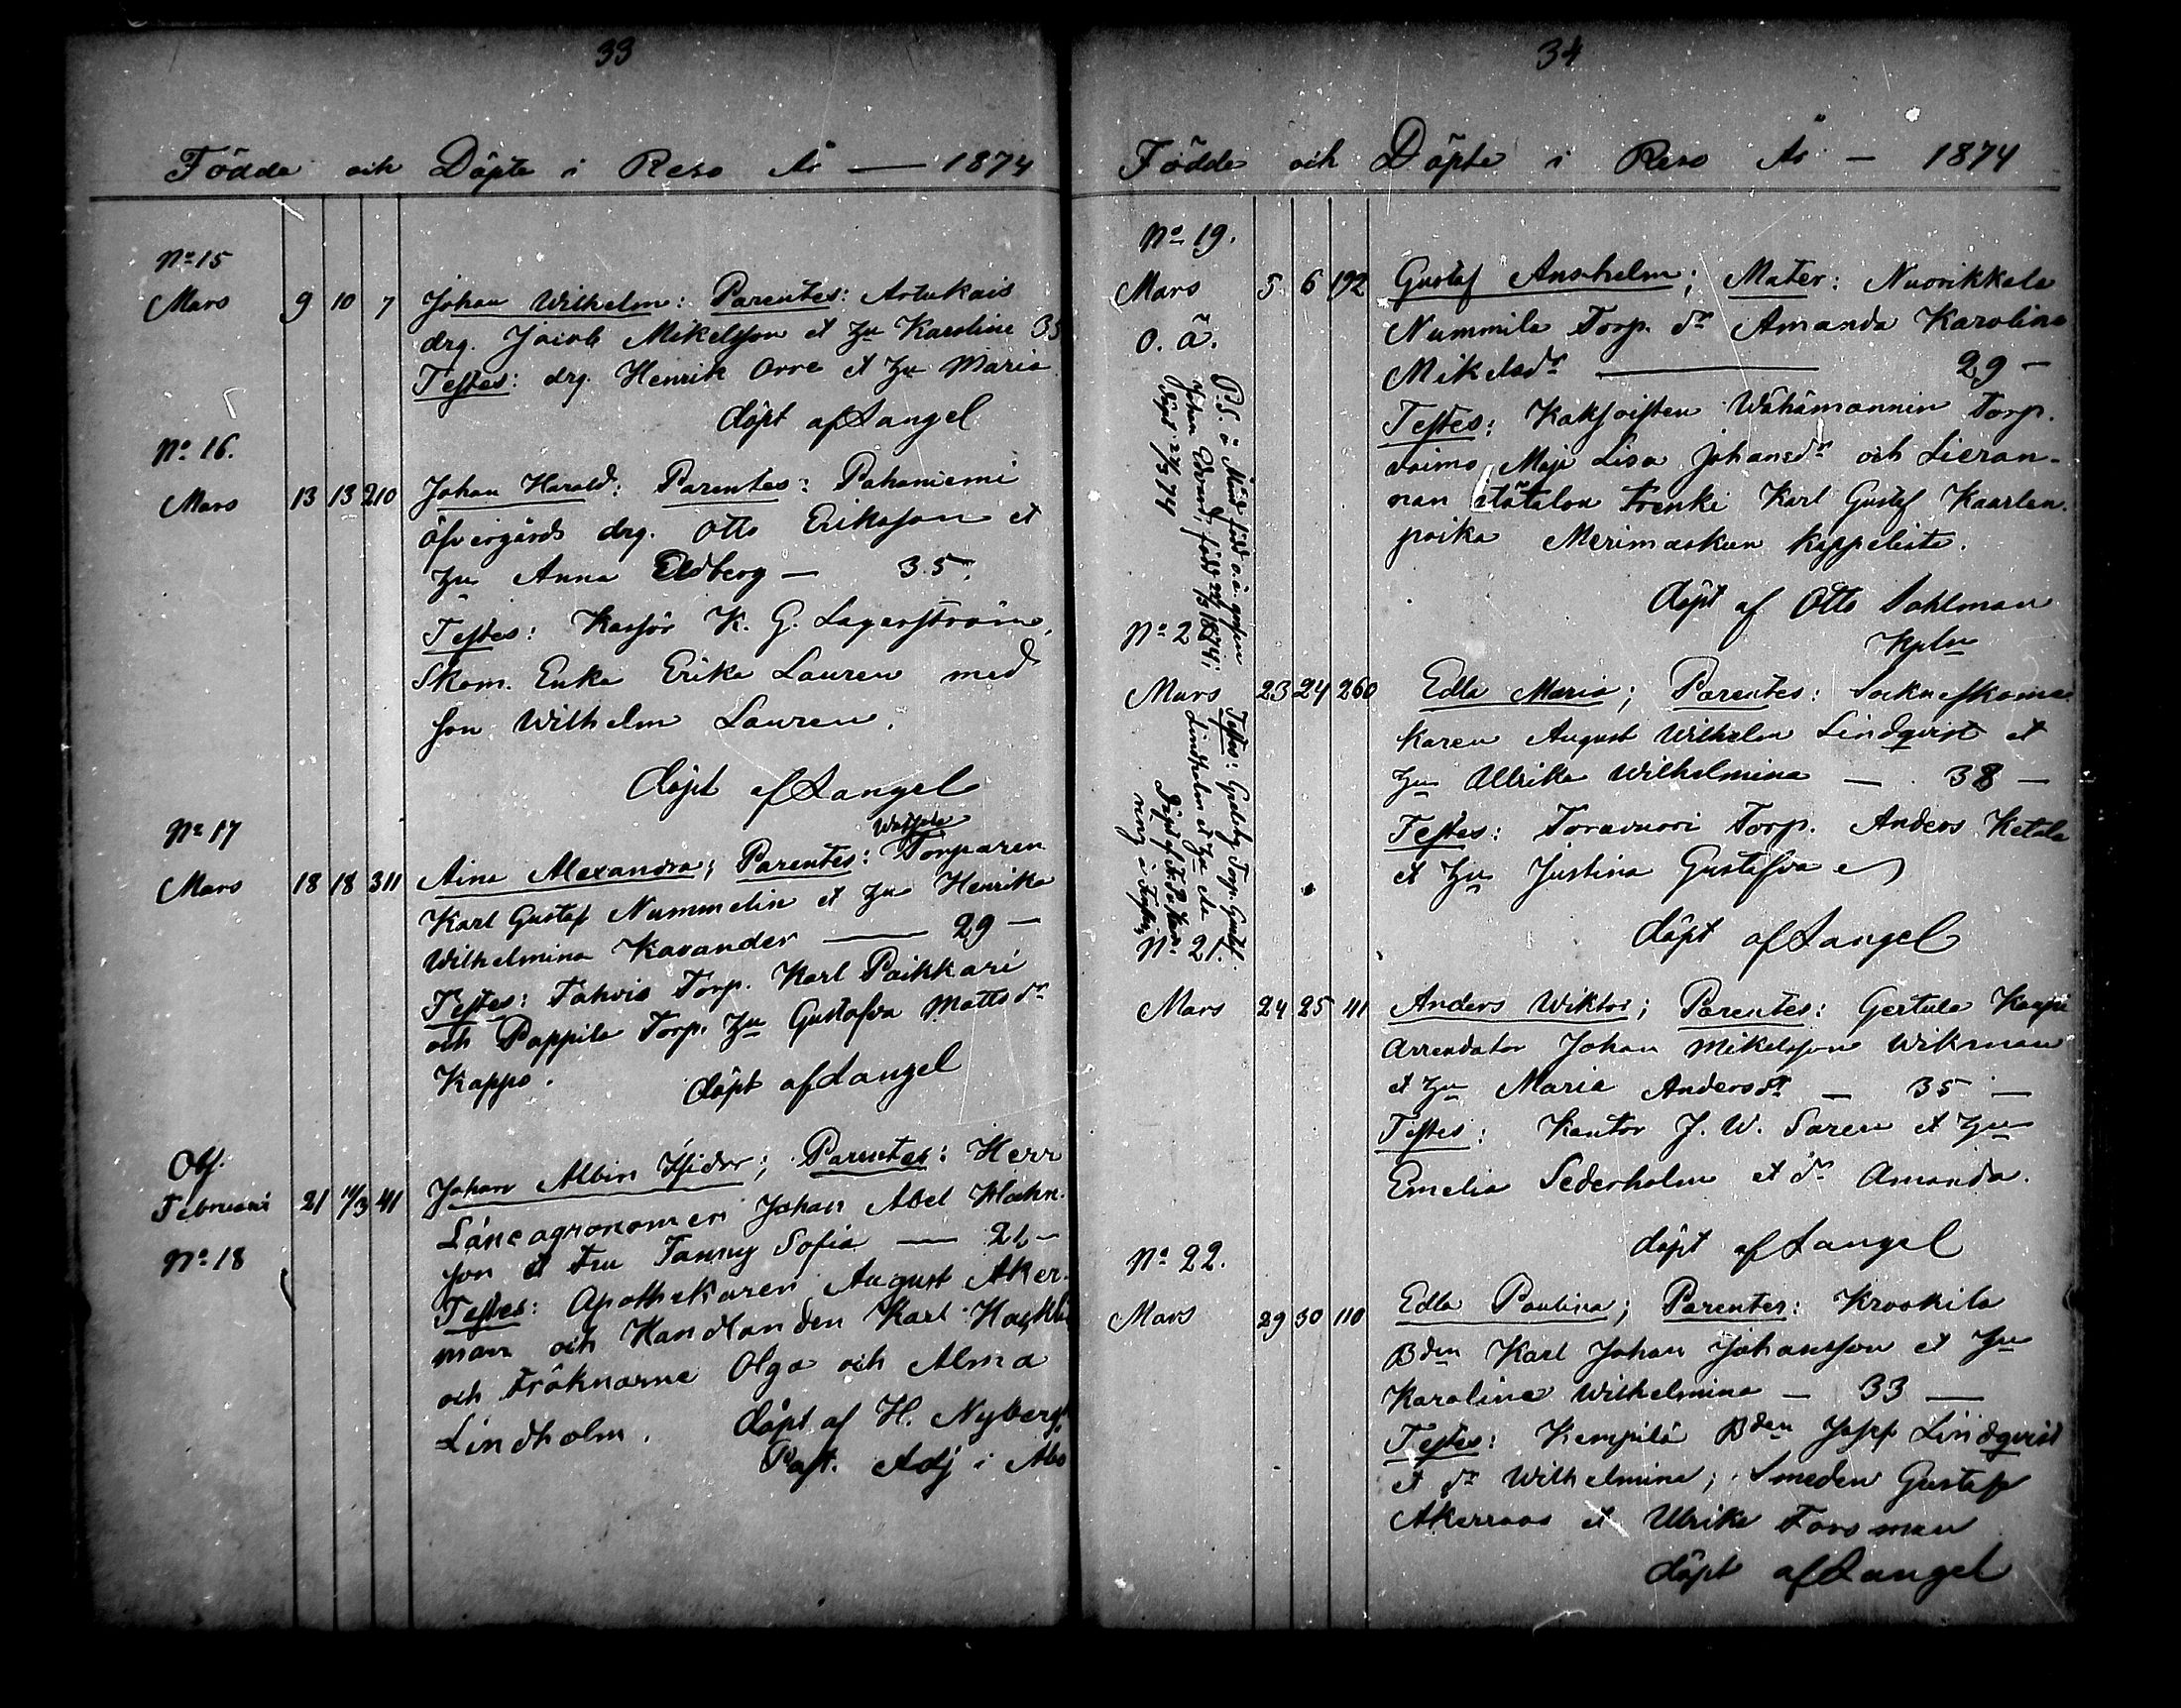 33
Födde och Döpte i Reso År — 1874
No 15
Mars 9 10 7 Johan Wilhelm: Parentes: Artukais
drg. Jacob Mikelsson et hu Karolina 35
Testes: drg. Henrik Orre et hu Maria
döpt af Langel
No 16.
Mars 13 13 210 Johan Harald: Parentes: Pahaniemi
öfvergårds drg. Otto Eriksson et
hu Anna Edberg — 35.
Testes: K. G. Lagerström,
Skom. Enka Erika Lauren med
son Wilhelm Lauren.
döpt af Langel
No 17
Mars 18 18 311 Aina Alexandra; Parentes: Torparen
Karl Gustaf Nummelin et hu Henrika
Wilhelmina Kavander — 29 —
Testes: Tahvio Torp. Karl Paikkari
och Pappila Torp. hu Gustafva Mattsdr
Kappo.
döpt af Langel
Obs.
Februari 21 11/3 41 Johan Albin Isidor; Parentes: Herr
No 18
Läneagronomen Johan Abel
son et Fru Fanny Sofia — 21 —
Testes: Apothekaren August Aker-
man och Handlanden Karl
och Fröknarne Olga och Alma
Lindholm.
döpt af H. Nyberg,
Past. Adj i Abo
34
Födde och Döpte i Reso År — 1874
No 19.
Mars 5 6 192 Gustaf Anshelm; Mater: Nuorikkala
o. ä.
Nummila Torp. dr Amanda Karolina
Mikelsdr — 29 —
Testes: Kaksoisten Wähämannin Torp.
vaimo Maja Lisa Johansdr och Lieran-
nan itätalon trenki Karl Gustaf Kaarlen-
poika Merimaskun kappelista.
döpt af Otto Sahlman
Kpln
P.S. o. ä. gossen
Johan Edvard, född 22/3 1874;
döpt 24/3 74
Testes: Torp. Gustaf
Lindholm et hu
No 2
Mars 23 24 260 Edla Maria; Parentes: Socknskoma-
karen August Wilhelm Lindqvist et
hu Ulrika Wilhelmina — 38 —
Testes: Toravuori Torp. Anders Ketala
et hu Justina Gustafva
döpt af Langel
No 21.
Mars 24 25 41 Anders Wiktor; Parentes: Gertula
Arrendator Johan Mikelsson Wikman
et hu Maria Andersdr — 35 —
Testes: Kantor J. W. Saren et hu
Emelia Sederholm et dr Amanda.
döpt af Langel
No 22.
Mars 29 30 110 Edla Paulina; Parentes: Krookila
Bden Karl Johan Johansson et hu
Karolina Wilhelmina — 33 —
Testes: Kempilä Bden Josef Lindqvist
et dr Wilhelmina; Smeden Gustaf
Akerroos et Ulrika Forsman
döpt af Langel